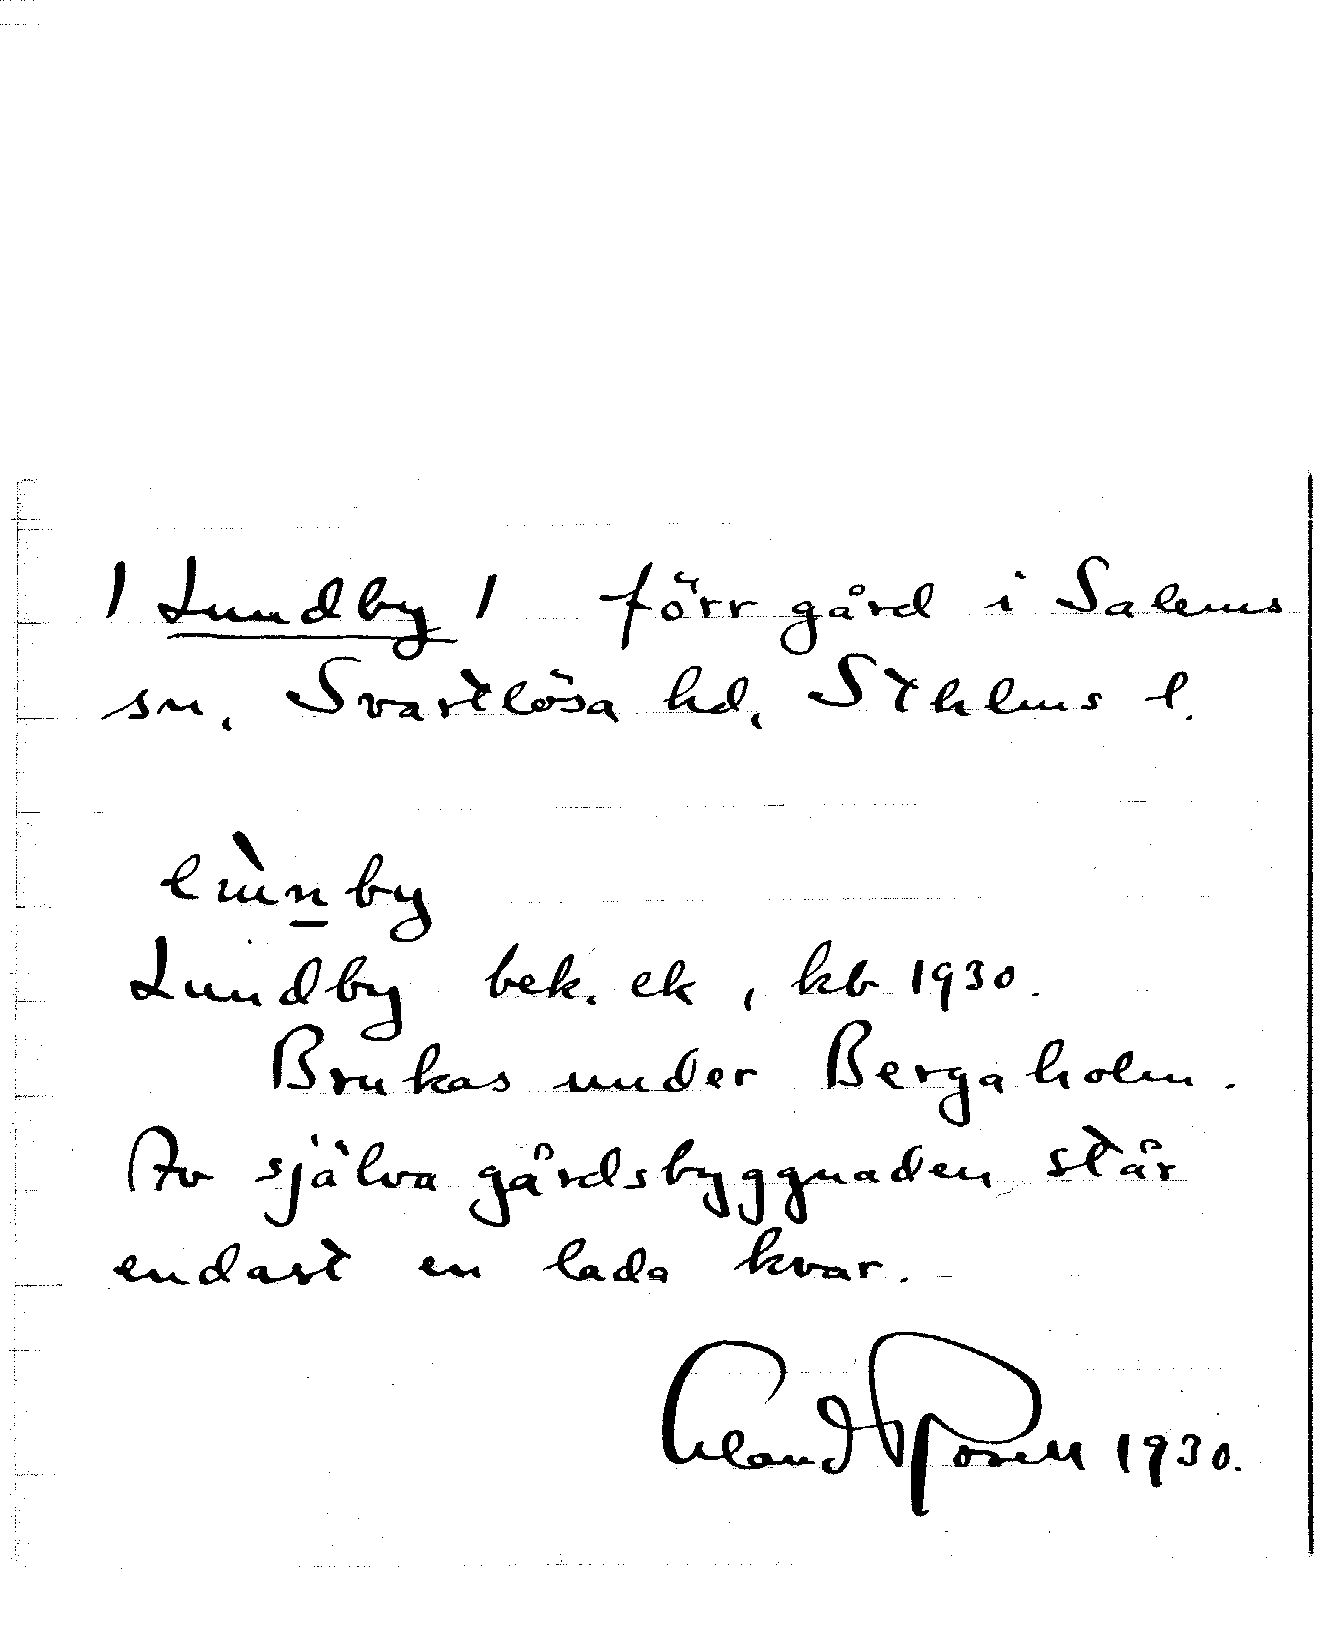 / Lundby / förr gård i Salems
sn, Svartlösa hd, Sthlms l.
lùnby
Lundby bek. ek, kb 1930.
Brukas under Bergaholm.
Av själva gårdsbyggnaden står
endast en lada kvar.
Erland Rosell 1930.